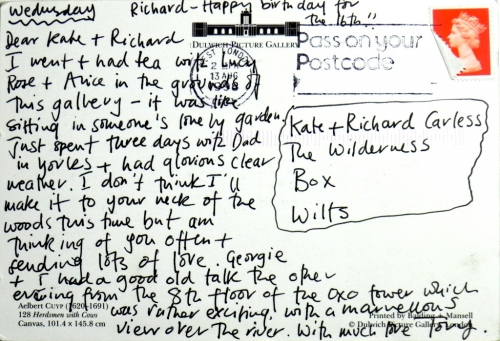 Wednesday
Richard - Happy birthday for
The 16th!!
DULWICH PICTURE GALLERY
Pass on your
Postcode
LONDON
13 AUG
Dear Kate + Richard
I went + had tea with Lucy
Rose + Alice in the grounds of
This gallery - it was like
sitting in someone's lovely garden.
Just spent three days with Dad
in Yorks + had glorious clear
weather. I don't think I'll
make it to your neck of the
woods this time but am
thinking of you often +
sending lots of love. Georgie
+ I had a good old talk the other
evening from the 8th floor of the oxo tower which
was rather exciting, with a marvellous
view over the river. With much love
Kate + Richard Carless
The Wilderness
Box
Wilts
Aelbert CUYP (1620-1691)
128 Herdsmen with Cows
Canvas, 101.4 x 145.8 cm
Printed by Balding + Mansell
© Dulwich Picture Gallery, London